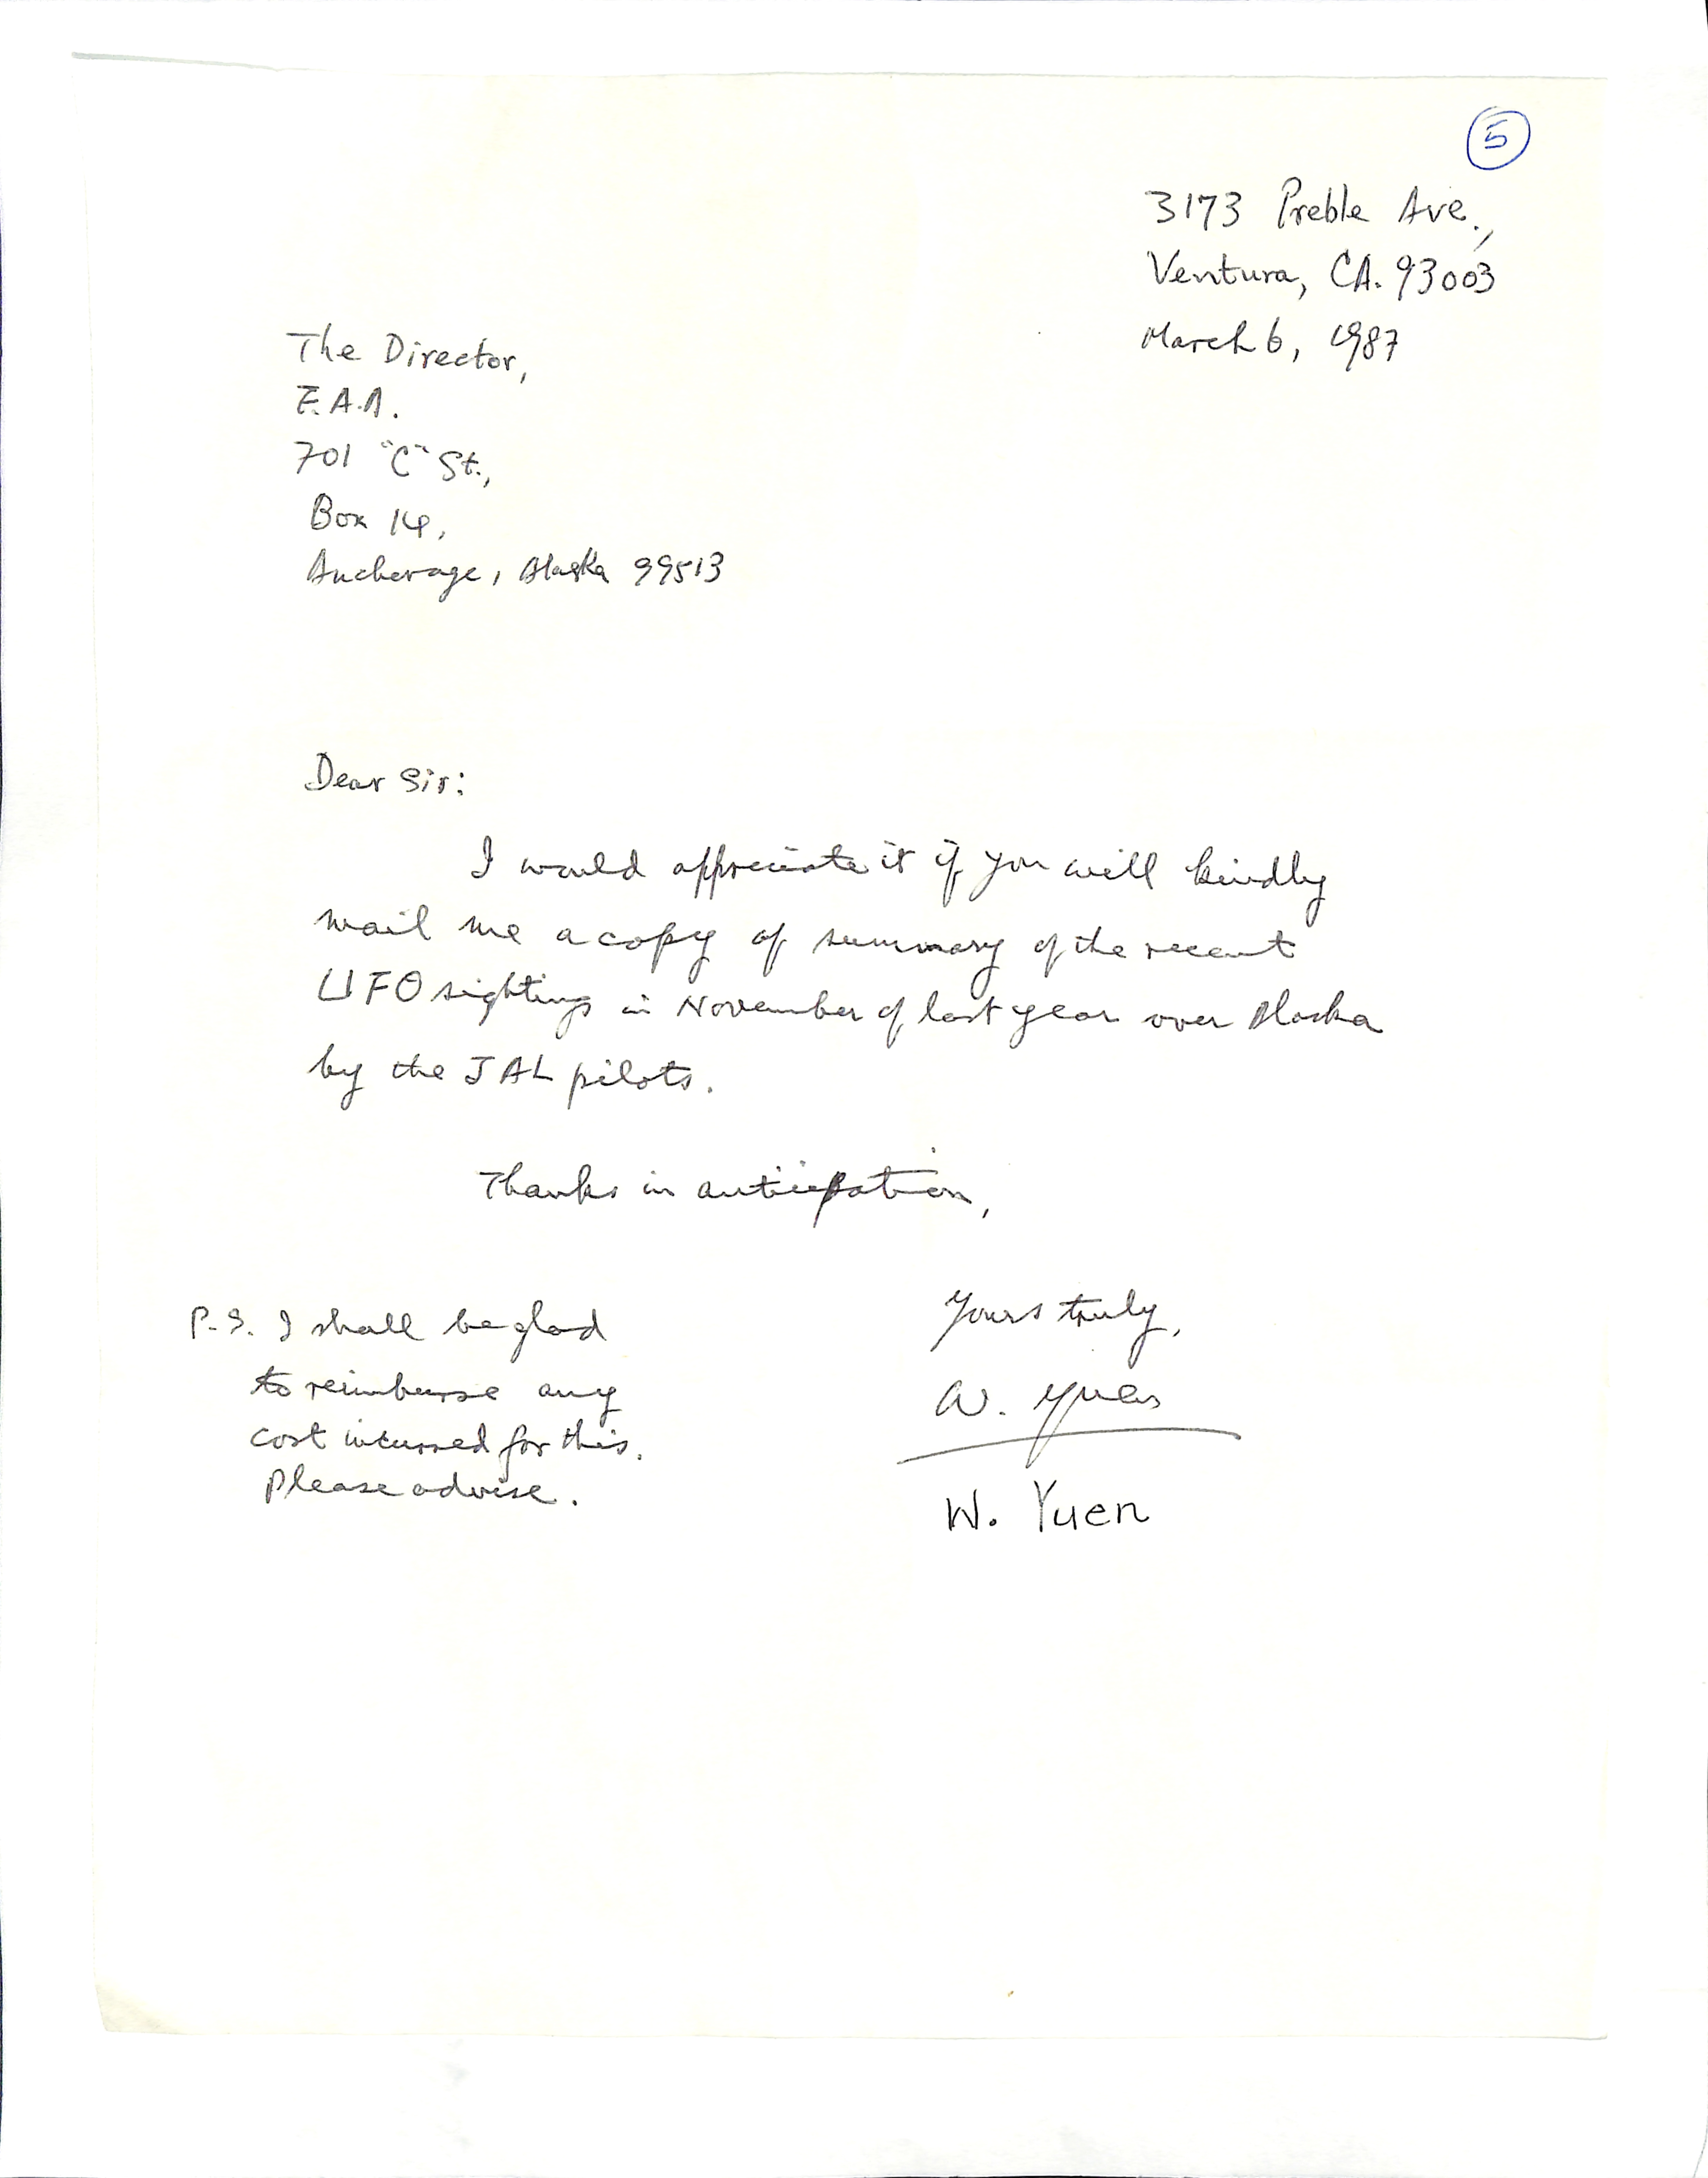 5
3173 Preble Ave.,
Ventura, CA. 93003
March 6, 1987
The Director,
F.A.A.
701 "C" St.,
Box 14,
Anchorage, Alaska 99513
Dear Sir:
I would appreciate it if you will kindly
mail me a copy of summary of the recent
UFO sightings in November of last year over Alaska
by the JAL pilots.
Thanks in anticipation,
Yours truly,
W. Yuen
W. Yuen
P.S. I shall be glad
to reimburse any
cost incurred for this.
Please advise.